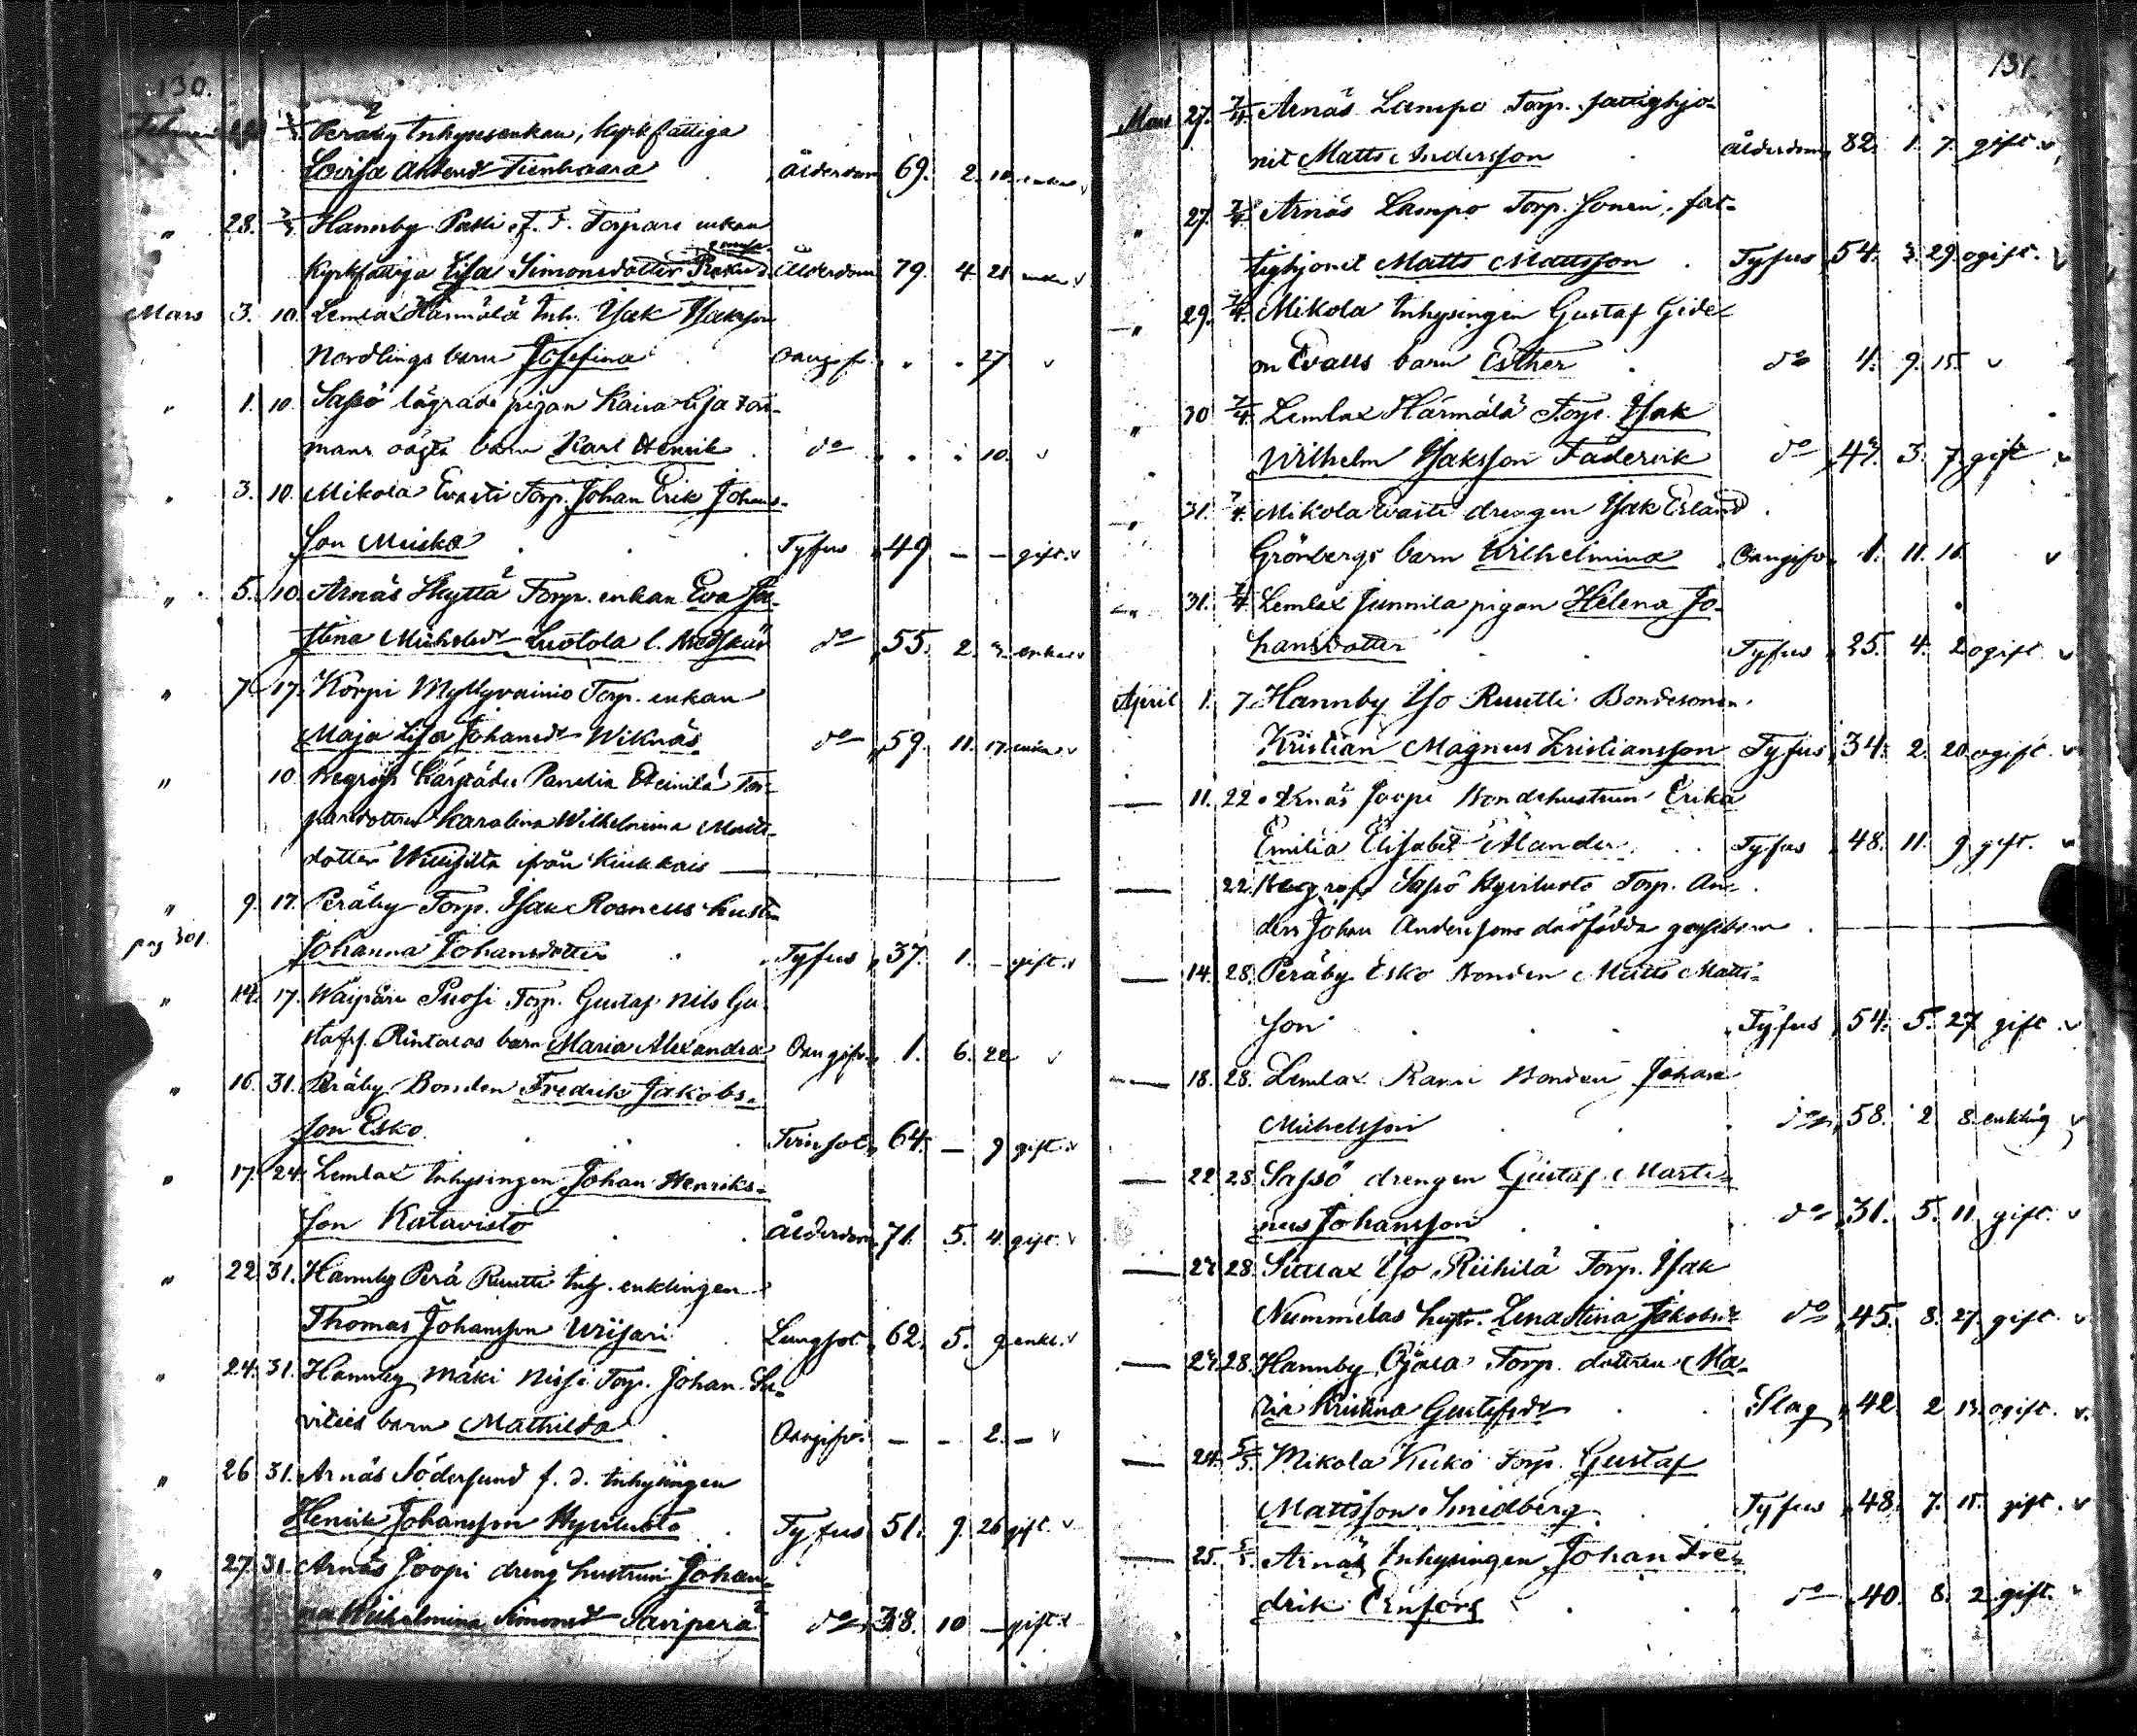 130.
Peräby Inhysesenkan, kyrkfattiga
Lovisa Tienhaara Ålderdom 69. 2. 10. enka v
" 28. Hannby Pakki f. d. Torpare enkan
Kyrkfattiga Lisa Simonsdotter Ålderdom 79. 4 28 enka v
Mars 3. 10. Lemlax Härmälä Inh. Isak Isaksson
Nordlings barn Josefina Oangifv. " . 27 v
" 1. 10 Sapsö lägrade pigan Kaisa Lisa For-
mans oägta barn Karl Henrik do " . 10. v
" 3. 10. Mikola Evasti Torp. Johan Erik Johans-
son Muska Tyfus 49 — — gift. v
" 5. 10. Arnäs Skyttä Torp. enkan Eva Ju-
stina Michelsdr Luotola l. do 55. 2. 3. enka v
" 7. 17. Korpi Myllyvainio Torp. enkan
Maja Lisa Johansdr Wiknäs do 59. 11. 17. enka v
" 10. Begrofs Panelia Heinilä Tor-
paredottren Karolina Wilhelmina Matts-
dotter ifrån Kiukkais —
" 9. 17. Peräby Torp. Isak Rosnells hustru
pag 301. Johanna Johansdotter Tyfus 37. 1. — gift. v
" 14. 17. Torp. Gustaf Nils Gu-
stafss. Rintalas barn Maria Alexandra Oangifv. 1. 6. 22 v
" 16. 31. Peräby Bonden Fredrik Jakobs-
son Esko. Tvinsot 64. — 9 gift. v
" 17. 24. Lemlax Inhysingen Johan Henriks-
son Katavisto Ålderdom 71. 5. 4. gift. v
" 22. 31. Hannby Perä Ruutti Inh. enklingen
Thomas Johansson Lungsot 62. 5. 9 enkl. v
" 24. 31. Hannby Mäki Nissi Torp. Johan
barn Mathilda Oangifv. — — 2. — v
" 26 31. Arnäs Södersund f. d. Inhysingen
Henrik Johansson Hyviluoto Tyfus 51. 9. 26 gift. v
" 27. 31. Arnäs Joopi dreng hustrun Johan-
na Wilhelmina Simonsdr Saviperä do 38. 10 — gift. v
131.
Mars 27. 7/4. Arnäs Lampo Torp. fattighjo-
net Matts Andersson Ålderdom 82. 1. 7. gift. v
" 27. 7/4 Arnäs Lampo Torp. sonen, fat-
tighjonet Matts Mattsson Tyfus 54. 3. 29. ogift. v
" 29. 7/4. Mikola Inhysingen Gustaf Gide-
on Evalls barn Esther do 4. 9. 15. v
" 30 7/4 Lemlax Härmälä Torp. Isak
Wilhelm Isaksson Fädervik do 47. 3. 7. gift v
" 31. 7/4. Mikola Evasti drengen Isak Erland
Grönbergs barn Wilhelmina Oangifv. 1. 11. 16. v
" 31. 7/4 Lemlax Junnila pigan Helena Jo-
hansdotter Tyfus 25. 4. 2 ogift v
April 1. 7. Hannby Iso Ruutti Bondesonen
Kristian Magnus Kristiansson Tyfus 34. 2. 20. ogift. v
— 11. 22. Arnäs Joopi Bondehustrun Erika
Emilia Elisabet Ålander Tyfus 48. 11. 9 gift. v
— 22. Begrofs Sapsö Hyviluoto Torp. An-
ders Johan Anderssons dödfödda gossebarn —
— 14. 28. Peräby Esko Bonden Matts Matts-
son Tyfus 54. 5. 27 gift. v
— 18. 28. Lemlax Bonden Johan
Michelsson do 58. 2 8. enkling v
— 22 28. Sapsö drengen Gustaf Marti-
nus Johansson do 31. 5. 11. gift. v
— 28. Sutlax Iso Riihilä Torp. Isak
Nummelas hustr. Lena Stina Jakobsdr do 45. 8. 27. gift. v
— 28. Hannby Torp. dottren Ma-
ria Kristina Gustafsdr Slag 42. 2 13. ogift. v
— 24. 5/5. Mikola Torp. Gustaf
Mattsson Smidberg Tyfus 48. 7. 15. gift. v
— 25. 5/5. Arnäs Inhysingen Johan Fre-
drik Enfors do 40. 8. 2 gift. v